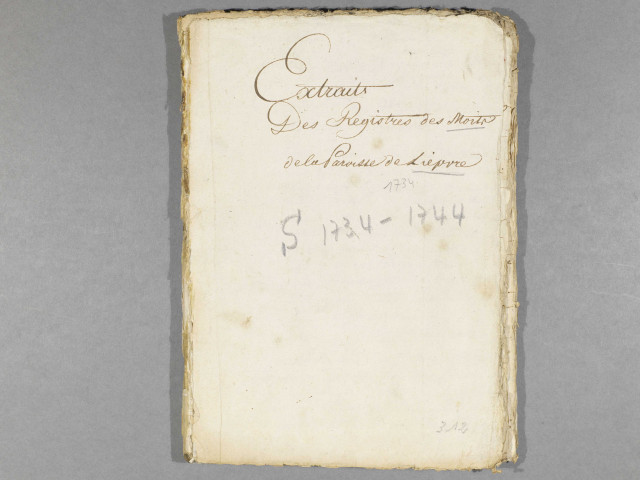 Extraits
Des Registres des Morts
de la Paroisse de Lièpvre
1734
S 1734 - 1744
312